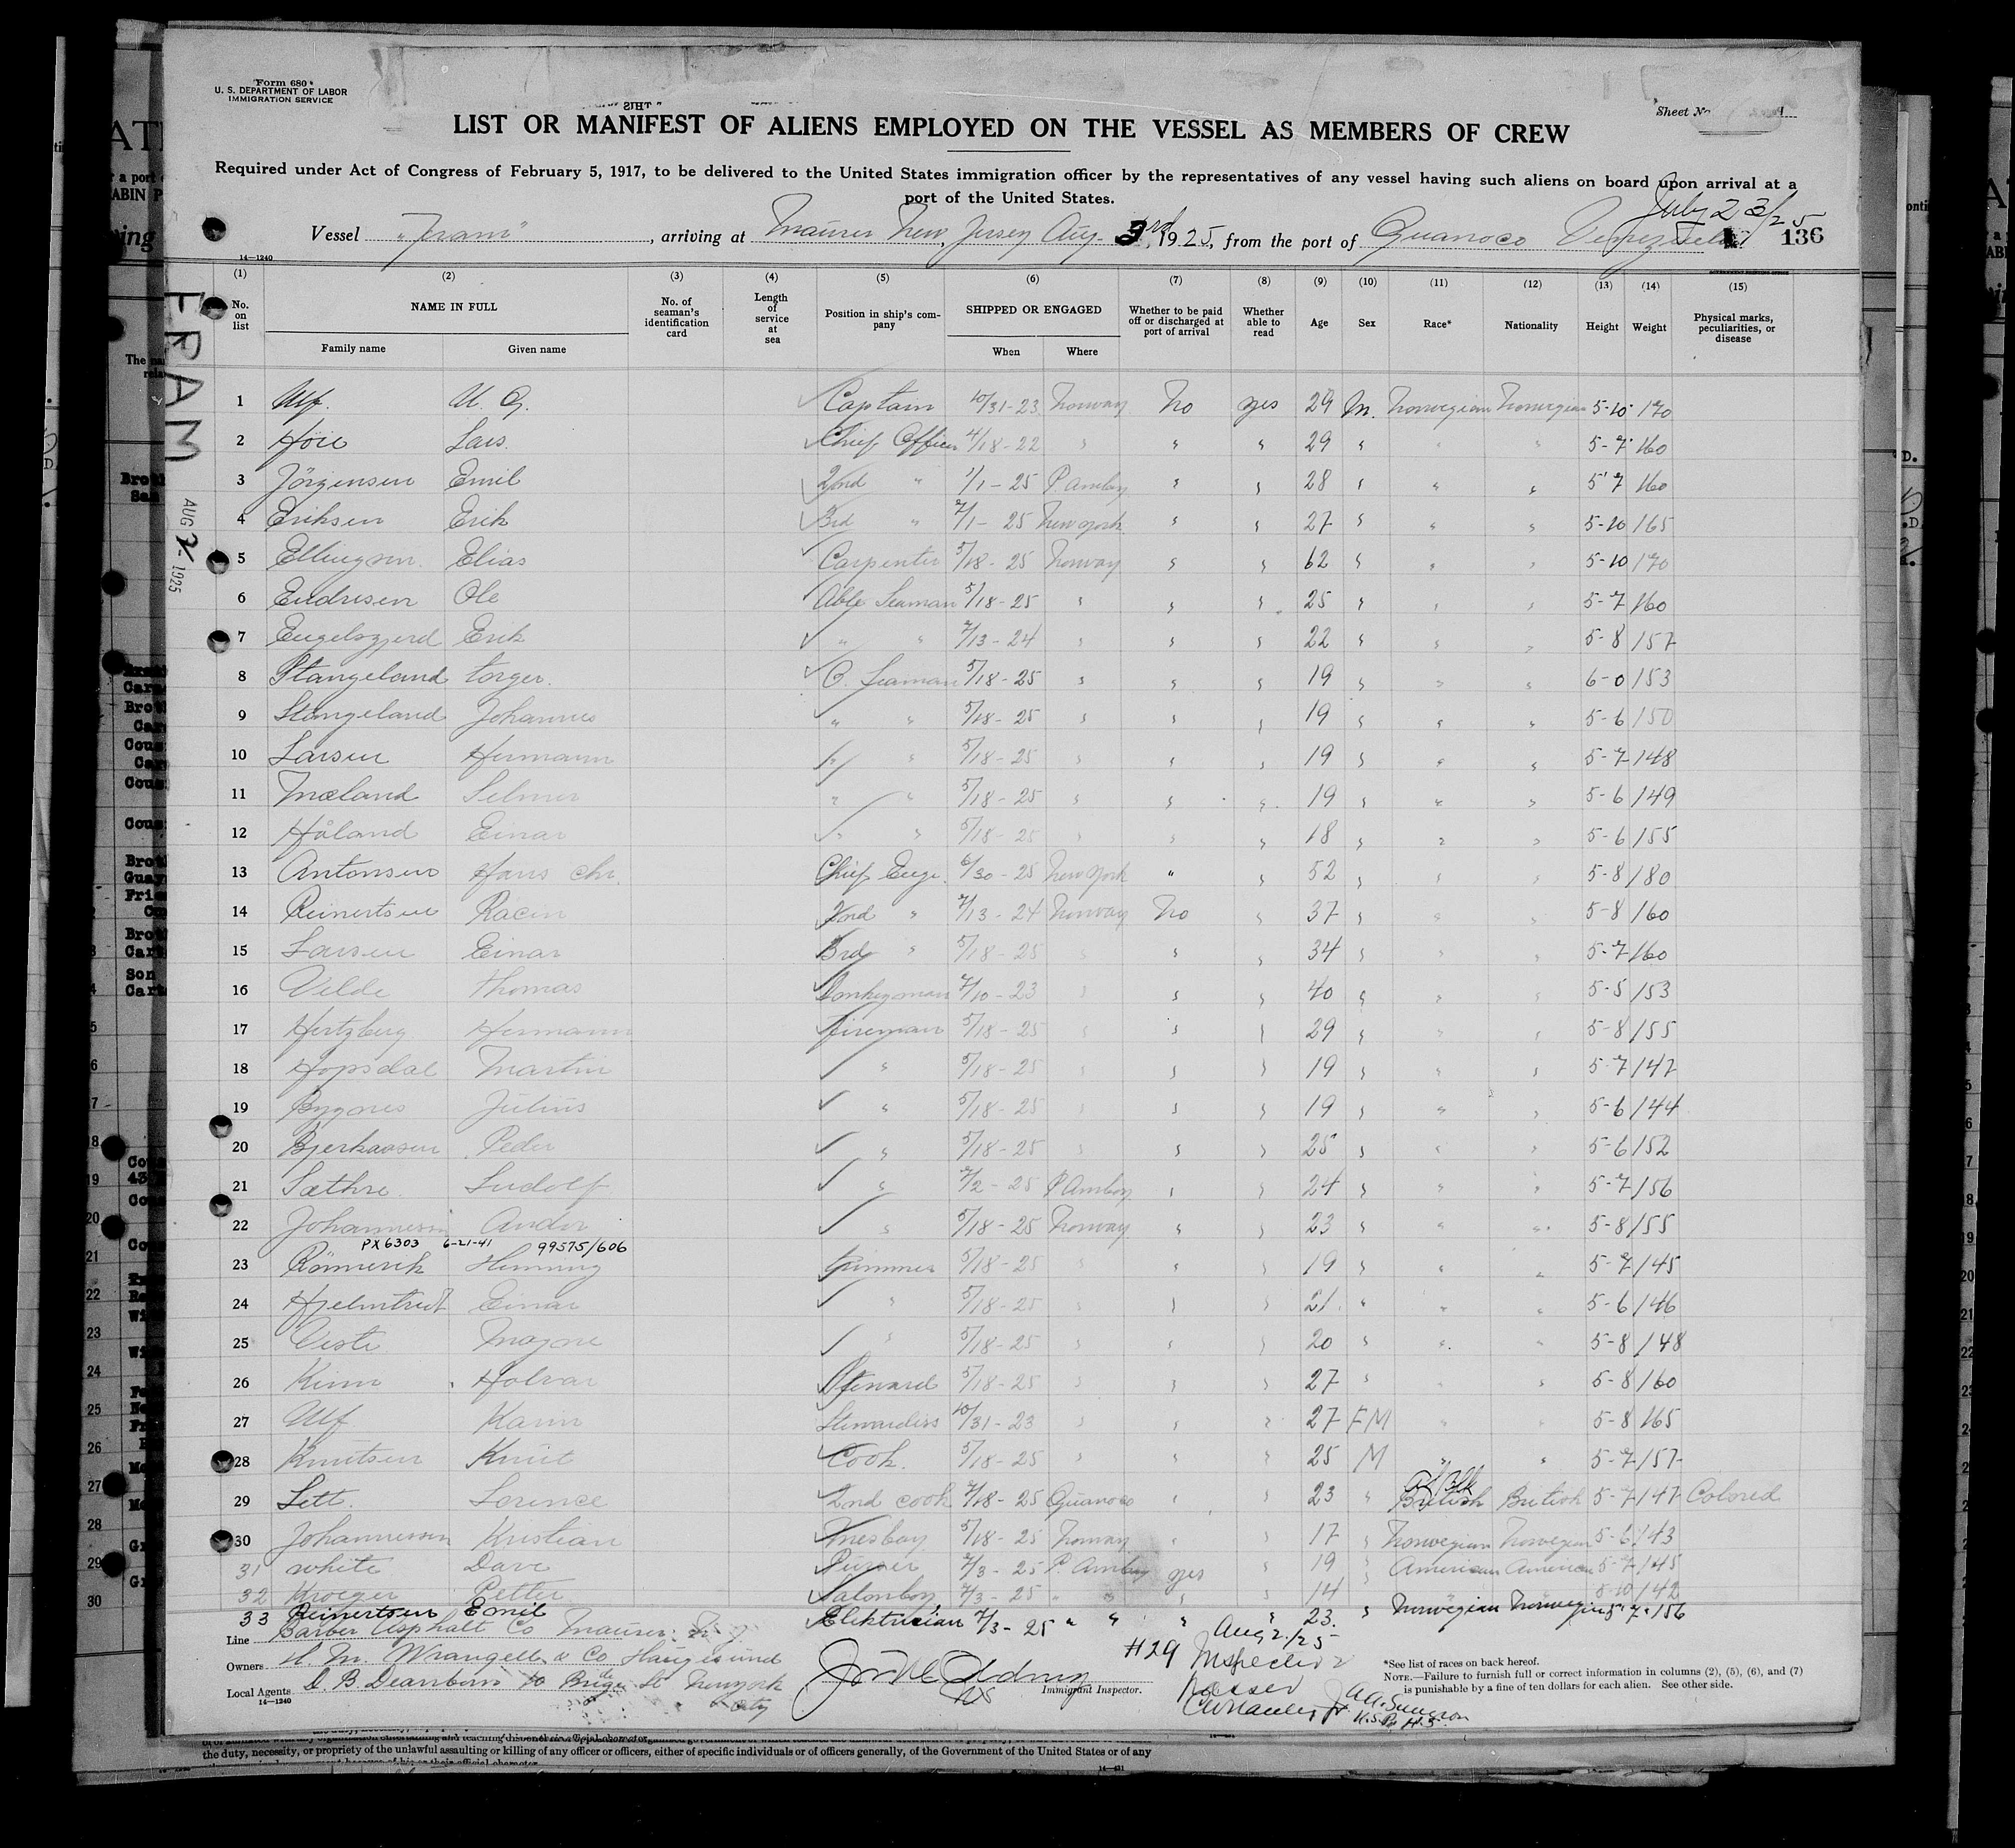 Form 680
U. S. DEPARTMENT OF LABOR
IMMIGRATION SERVICE
Sheet No.
LIST OR MANIFEST OF ALIENS EMPLOYED ON THE VESSEL AS MEMBERS OF CREW
Required under Act of Congress of February 5, 1917, to be delivered to the United States immigration officer by the representatives of any vessel having such aliens on board upon arrival at a
port of the United States.
July 23/25
Vessel "Fram", arriving at Maurer New Jersey Aug. 3rd, 1925, from the port of Guanoco Venezuela 136
14—1240
FRAM
AUG 2 - 1925
(1) (2) (3) (4) (5) (6) (7) (8) (9) (10) (11) (12) (13) (14) (15)
No. on list NAME IN FULL Family name Given name No. of seaman's identification card Length of service at sea Position in ship's company SHIPPED OR ENGAGED When Where Whether to be paid off or discharged at port of arrival Whether able to read Age Sex Race* Nationality Height Weight Physical marks, peculiarities, or disease
1 Ulf. U. G. Captain 10/31-23 Norway No yes 29 M. Norwegian Norwegian 5-10 170
2 Höie Lars. Chief Officer 4/18-22 " " " 29 " " " 5-7 160
3 Jörgensen Emil 2nd " 1/1-25 P Amboy " " 28 " " " 5-7 160
4 Eriksen Erik 3rd " 2/1-25 New York " " 27 " " " 5-10 165
5 Ellingsen Elias Carpenter 5/18-25 Norway " " 62 " " " 5-10 170
6 Endresen Ole Able Seaman 5/18-25 " " " 25 " " " 5-7 160
7 Engelsgjerd Erik " " 7/13-24 " " " 22 " " " 5-8 157
8 Stangeland Torger. O. Seaman 5/18-25 " " " 19 " " " 6-0 153
9 Stangeland Johannes " " 5/18-25 " " " 19 " " " 5-6 150
10 Larsen Hermann " " 5/18-25 " " " 19 " " " 5-7 148
11 Mæland Selmer " " 5/18-25 " " " 19 " " " 5-6 149
12 Håland Einar " " 5/18-25 " " " 18 " " " 5-6 155
13 Antonsen Hans Chr. Chief Engi. 6/30-25 New York " " 52 " " " 5-8 180
14 Reinertsen Racin 2nd " 7/13-24 Norway No " 37 " " " 5-8 160
15 Larsen Einar 3rd " 5/18-25 " " " 34 " " " 5-7 160
16 Velde Thomas Donkeyman 7/10-23 " " " 40 " " " 5-5 153
17 Hertzberg Hermann Fireman 5/18-25 " " " 29 " " " 5-8 155
18 Hopsdal Martin " 5/18-25 " " " 19 " " " 5-7 147
19 Bygnes Julius " 5/18-25 " " " 19 " " " 5-6 144
20 Bjerkaasen Peder " 5/18-25 " " " 25 " " " 5-6 152
21 Sæthre Ludolf " 7/2-25 P Amboy " " 24 " " " 5-7 156
22 Johannesen Ander " 5/18-25 Norway " " 23 " " " 5-8 155
PX6303 6-21-41 99575/606
23 Römerik Henning Trimmer 5/18-25 " " " 19 " " " 5-7 145
24 Hjelmtredt Einar " 5/18-25 " " " 21 " " " 5-6 146
25 Magne " 5/18-25 " " " 20 " " " 5-8 148
26 Kinn Halvar Steward 5/18-25 " " " 27 " " " 5-8 160
27 Ulf Karin Stewardess 10/31-23 " " " 27 FM " 5-8 165
28 Knutsen Knut Cook. 5/18-25 " " " 25 M " " 5-7 157
29 Lett. Lorence 2nd cook 7/18-25 Guanoco " " 23 " British British 5-7 147 Colored
30 Johannessen Kristian Messboy 5/18-25 Norway " " 17 " Norwegian Norwegian 5-6 143
31 White Dave 7/3-25 P. Amboy yes " 19 " American American 5-7 145
32 Kroeger Petter Salonboy 7/3-25 " " " " 14 " " 5-10 142
33 Reinertsen Emil Elektrician 7/3-25 " " " " 23. " Norwegian Norwegian 5-7 156
Line Barber Asphalt Co Maurer. N. J.
Owners H. M. Wrangell & Co Haugesund
Local Agents D. B. Dearborn Bridge St New York
City
14—1240
Immigrant Inspector.
#29
Aug 2/25
Inspected &
Passed
*See list of races on back hereof.
NOTE.—Failure to furnish full or correct information in columns (2), (5), (6), and (7)
is punishable by a fine of ten dollars for each alien. See other side.
the duty, necessity, or propriety of the unlawful assaulting or killing of any officer or officers, either of specific individuals or of officers generally, of the Government of the United States or of any
14—431